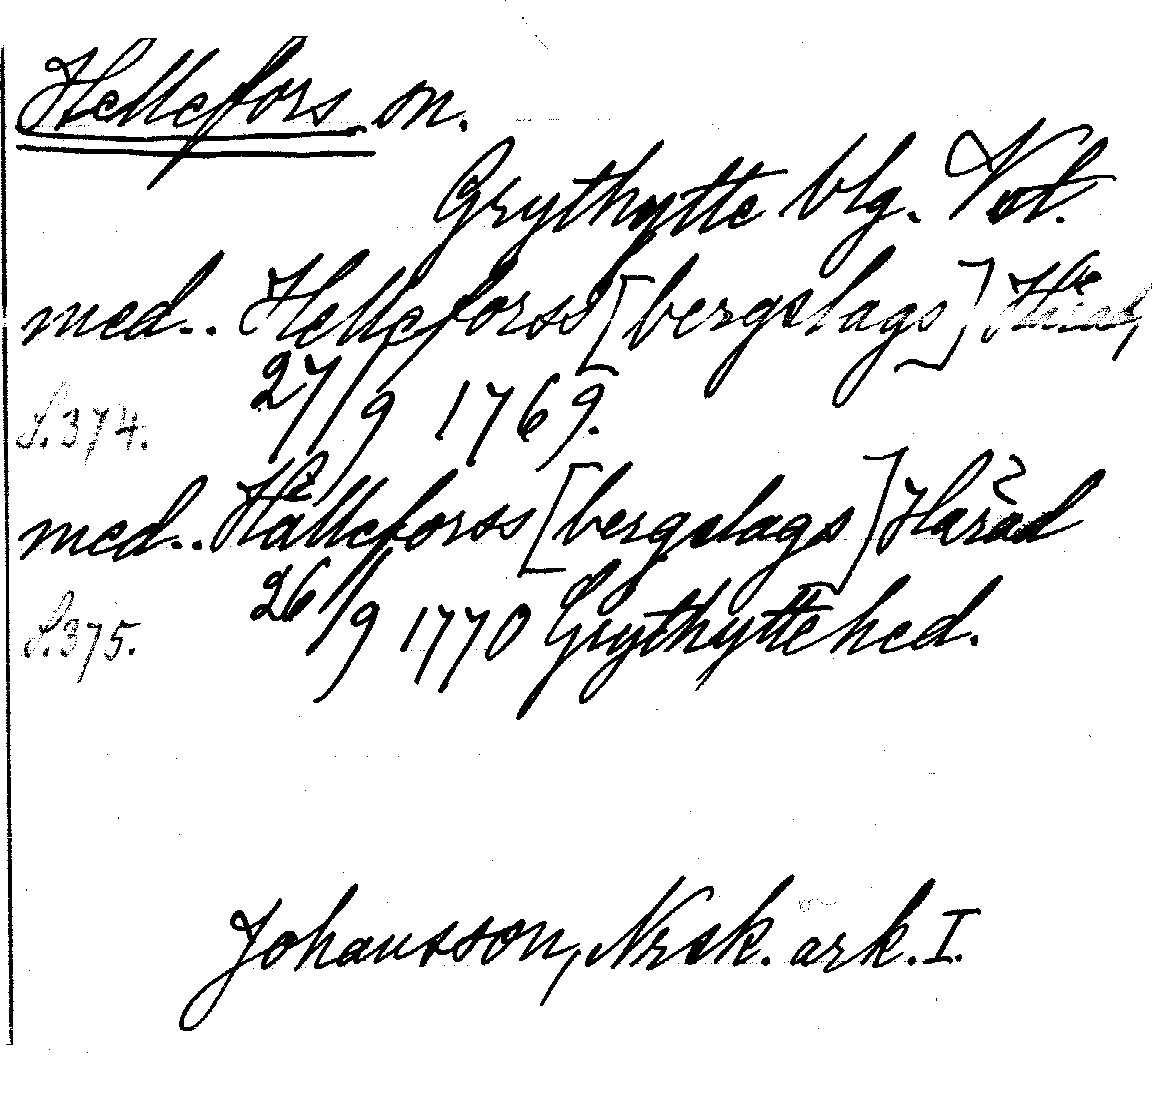 Hellefors sn.
Grythytte blg. Vstl.
med.. Helleforss [bergslags]
27/9 1769.
S.374.
med.. Hälleforss [bergslags] Härad
26/9 1770 Grythyttehed.
S.375.
Johansson, Nrsk. ark. I.